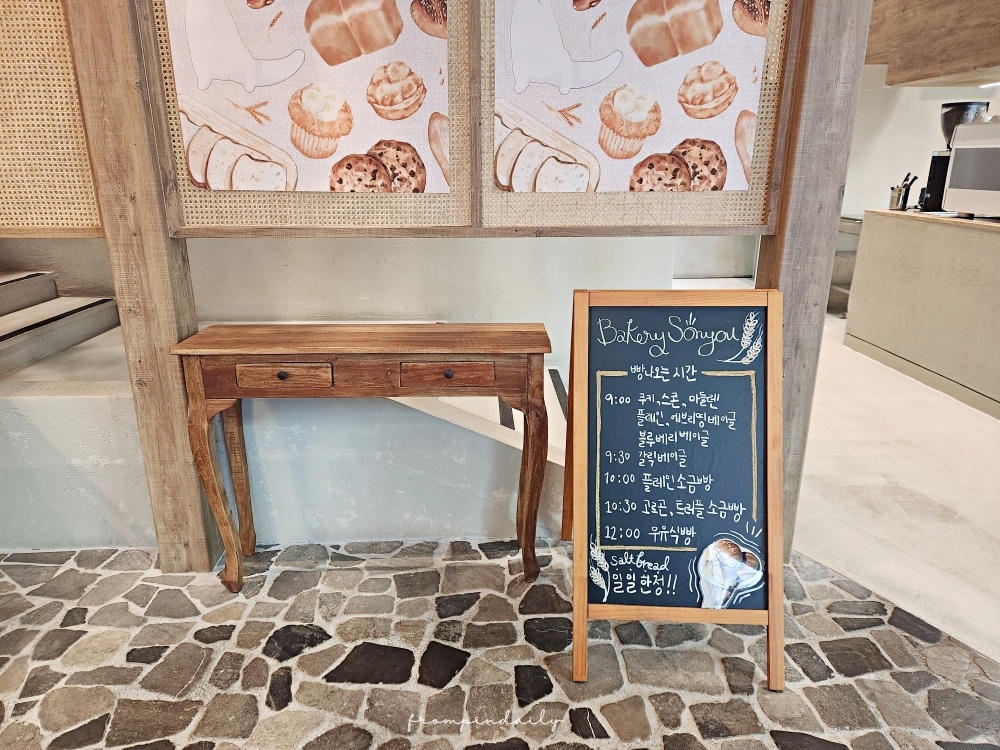 Bakery Sonyou
빵나오는 시간
9:00 쿠키, 스콘, 마들렌
플레인, 에브리띵 베이글
블루베리 베이글
9:30 갈릭베이글
10:00 플레인 소금빵
10:30 고르곤, 트러플 소금빵
12:00 우유식빵
Salt bread
일일한정!!
frompindaily